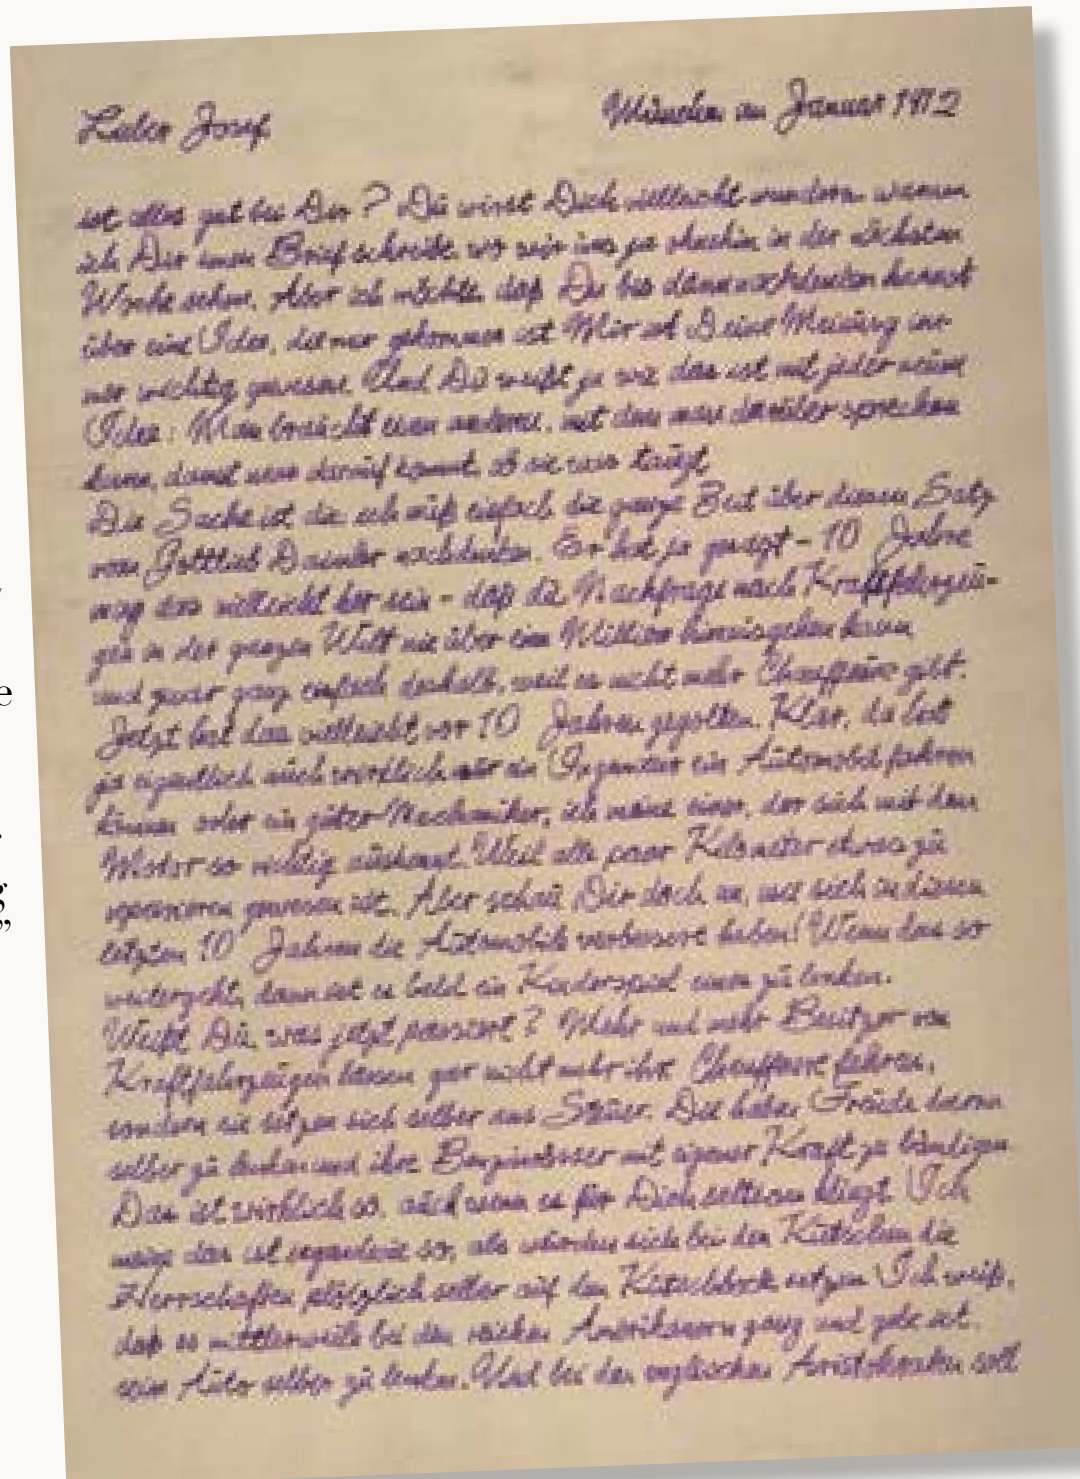 Lieber Josef. München im Januar 1912
ist alles gut bei Dir? Du wirst Dich vielleicht wundern, warum
ich Dir einen Brief schreibe, wo wir uns ja ohnehin in der nächsten
Woche sehen. Aber ich möchte, daß Du bis dann nachdenken kannst
über eine Idee, die mir gekommen ist. Mir ist Deine Meinung im-
mer wichtig gewesen. Und Du weißt ja wie das ist mit jeder neuen
Idee: Man braucht einen anderen, mit dem man darüber sprechen
kann, damit man darauf kommt, ob sie was taugt.
Die Sache ist die, ich muß einfach die ganze Zeit über diesen Satz
von Gottlieb Daimler nachdenken. Er hat ja gesagt - 10 Jahre
mag das vielleicht her sein - daß die Nachfrage nach Kraftfahrzeu-
gen in der ganzen Welt nie über eine Million hinausgehen kann,
und zwar ganz einfach deshalb, weil es nicht mehr Chauffeure gibt.
Jetzt hat das vielleicht vor 10 Jahren gegolten. Klar, da hat
ja eigentlich auch wirklich nur ein Ingenieur ein Automobil fahren
können oder ein guter Mechaniker, ich meine einer, der sich mit dem
Motor so richtig auskennt. Weil alle paar Kilometer etwas zu
reparieren gewesen ist. Aber schau Dir doch an, wie sich in diesen
letzten 10 Jahren die Automobile verbessert haben! Wenn das so
weitergeht, dann ist es bald ein Kinderspiel einen zu lenken.
Weißt Du, was jetzt passiert? Mehr und mehr Besitzer von
Kraftfahrzeugen lassen gar nicht mehr ihre Chauffeure fahren,
sondern sie setzen sich selber ans Steuer. Die haben Freude daran
selber zu lenken und ihre Benzinrösser mit eigener Kraft zu bändigen.
Das ist wirklich so, auch wenn es für Dich seltsam klingt. Ich
meine das ist irgendwie so, als würden sich bei den Kutschen die
Herrschaften plötzlich selber auf den Kutschbock setzen. Ich weiß,
daß es mittlerweile bei den reichen Amerikanern gang und gäbe ist,
sein Auto selber zu lenken. Und bei den englischen Aristokraten soll